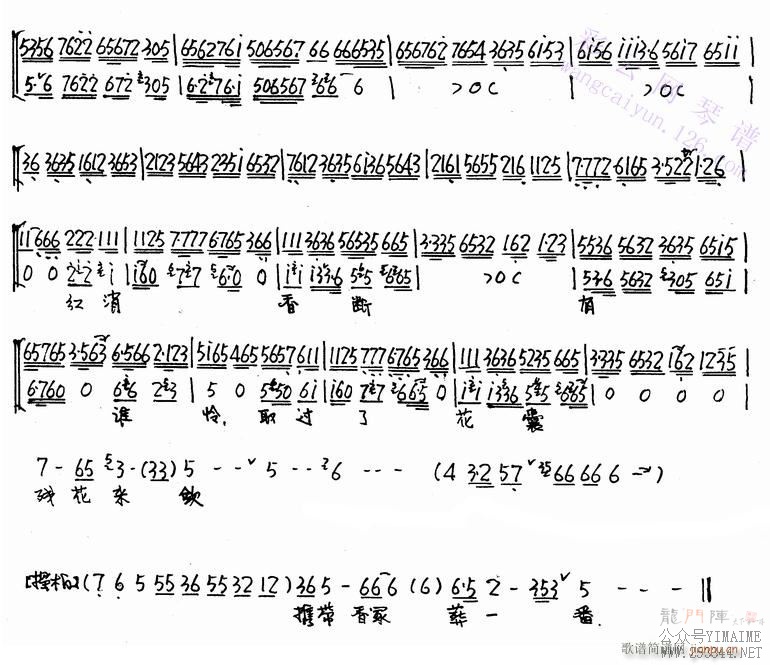 5356 7622 65672 305 | 6562761 506567 66 666535 | 656762 7654 3635 6153 | 6156 1113·6 5617 6511 |
5·6 7622 672 305 | 6·276·1 506567 66 6 | >0< | >0< |
36 3635 1612 3653 | 2123 5643 2351 6532 | 7612 3635 61365643 | 2161 5655 216 1125 | 7·772 6165 3·522 1·26 |
11666 222·111 | 1125 7·777 6765 366 | 111 3636 56535 665 | 3·335 6532 162 1·23 | 5536 5632 3635 6515 |
0 0 2·2 1 | 160 7·7 6·0 0 | 1·1 133·6 5·5 6665 | >0< | 53·6 5632 305 651 |
红 消 香 断 有
65765 3·563 6·566 2·123 | 5165 465 5657 611 | 1125 777 6765 366 | 111 3636 5235 665 | 3·335 6532 162 1235 |
6·760 0 6·6 2·3 | 5 0 5·50 61 | 160 7·7 6·665 0 | 1·1 133·6 5·5 6665 | 0 0 0 0 |
谁 怜, 取 过 了 花 囊
7 - 65 3 - (33) 5 - - 5 - - 6 - - - (4 3·2 57 66 66 6 -)
残 花 来 敛
(7 6 5 55 36 55 32 12) 36 5 - 66 6 (6) 6·5 2 - 353 5 - - - ||
携 带 香 冢 葬 一 番.
彩云网琴谱
wangcaiyun.126.com
龍門陣
公众号YIMAIME
歌谱简谱网 jianpu.cn
www.255644.NET